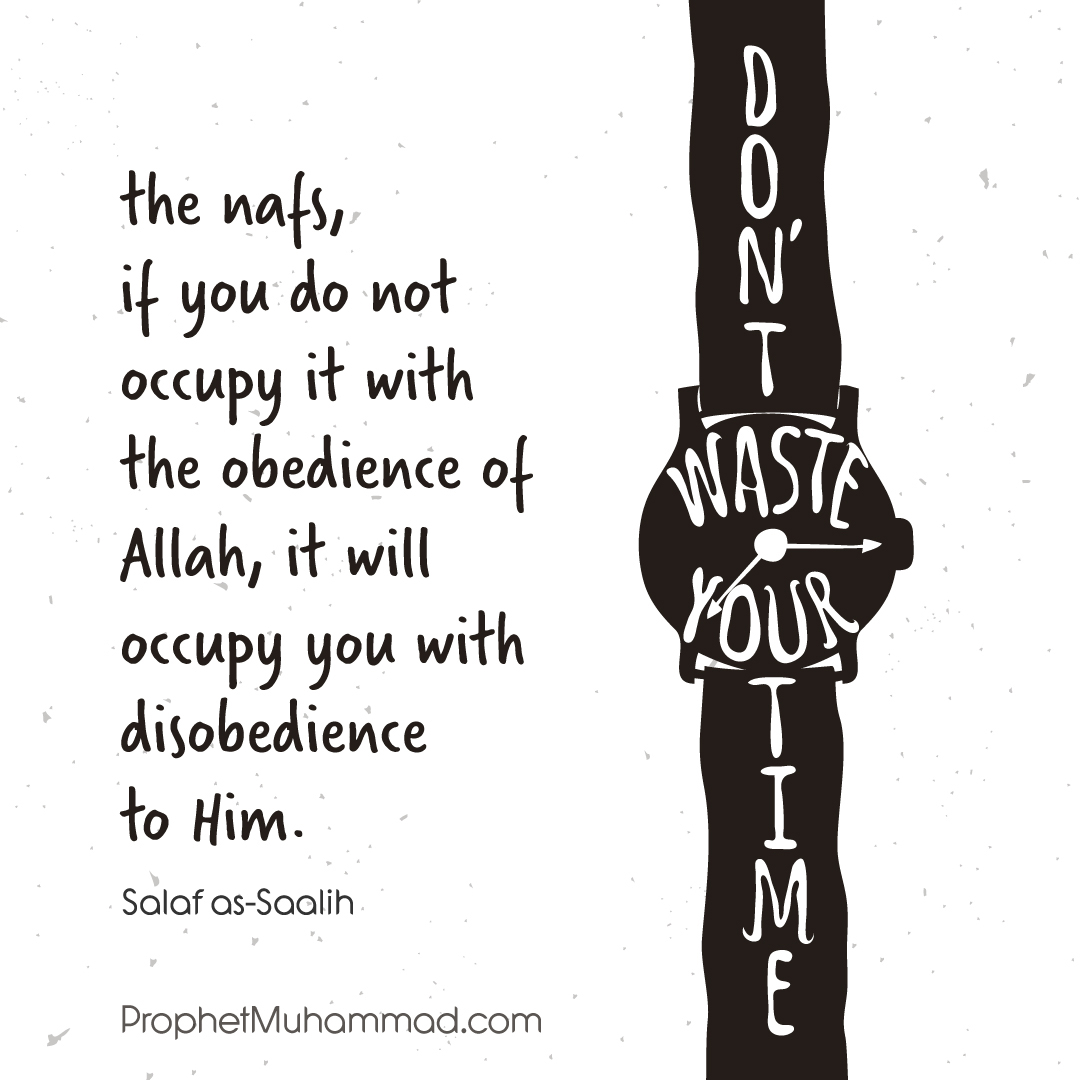 the nafs,
if you do not
occupy it with
the obedience of
Allah, it will
occupy you with
disobedience
to Him.
Salaf as-Saalih
ProphetMuhammad.com
DON'T
WASTE
YOUR
TIME